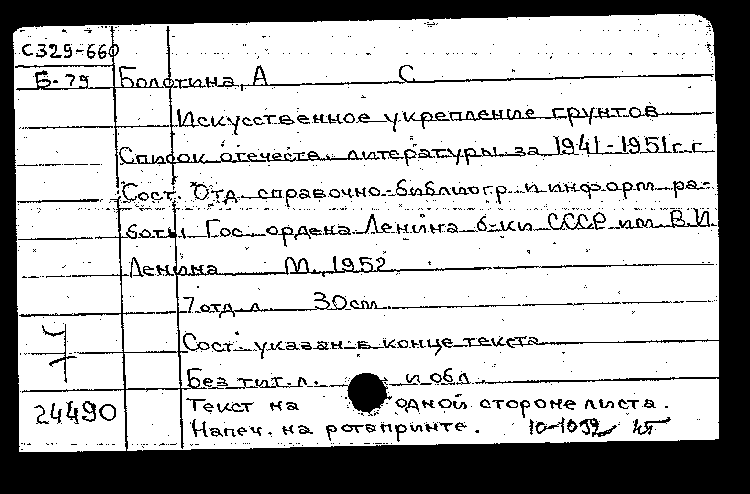 С329-660
Б-79 Болотина, А С
Искусственное укрепление грунтов
Список отечеств. литературы за 1941-1951г.г
Сост. Отд. справочно-библиогр и информ ра-
боты Гос. ордена Ленина б-ки СССР им В.И
Ленина М., 1952
7 отд л. 30cm
Сост. указан в конце текста
Без тит. л. и обл.
24490 Текст на одной стороне листа.
Напеч. на ротапринте. 10-1092